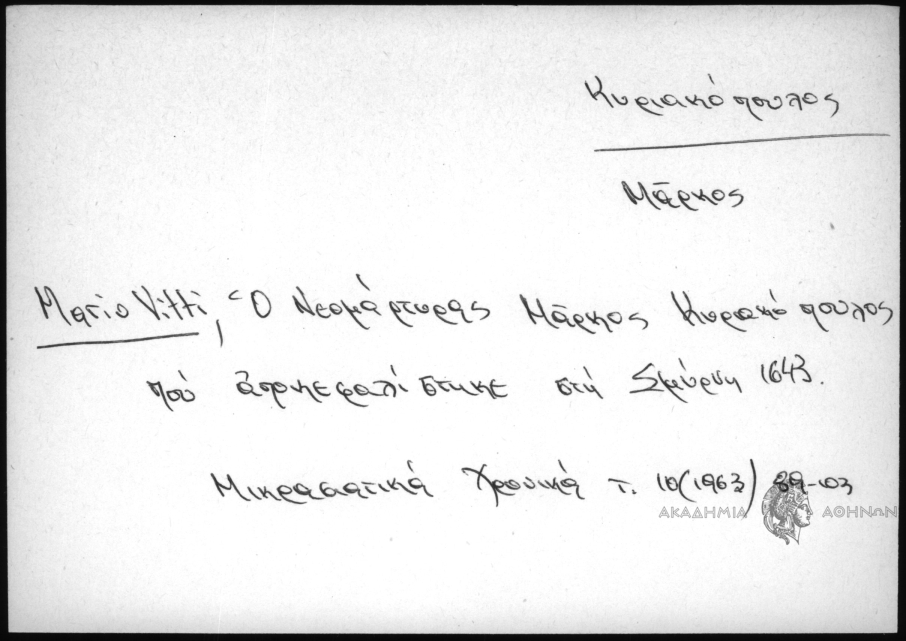 Κυριακόπουλος
Μᾶρκος
Mario Vitti, Ὁ Νεομάρτυρας Μᾶρκος Κυριακόπουλος
πού ἀποκεφαλίστηκε στή Σμύρνη 1643.
Μικρασιατικά Χρονικά τ. 10 (1963) 89-103
ΑΚΑΔΗΜΙΑ ΑΘΗΝΩΝ